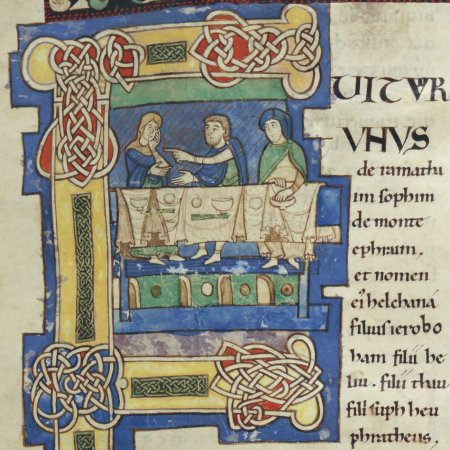 F
UIT VIR
VNVS
de ramatha
im sophim
de monte
ephraim,
et nomen
ei' helchana
filius ierobo
ham filii he
liu. filii thau
filii suph heu
phratheus,